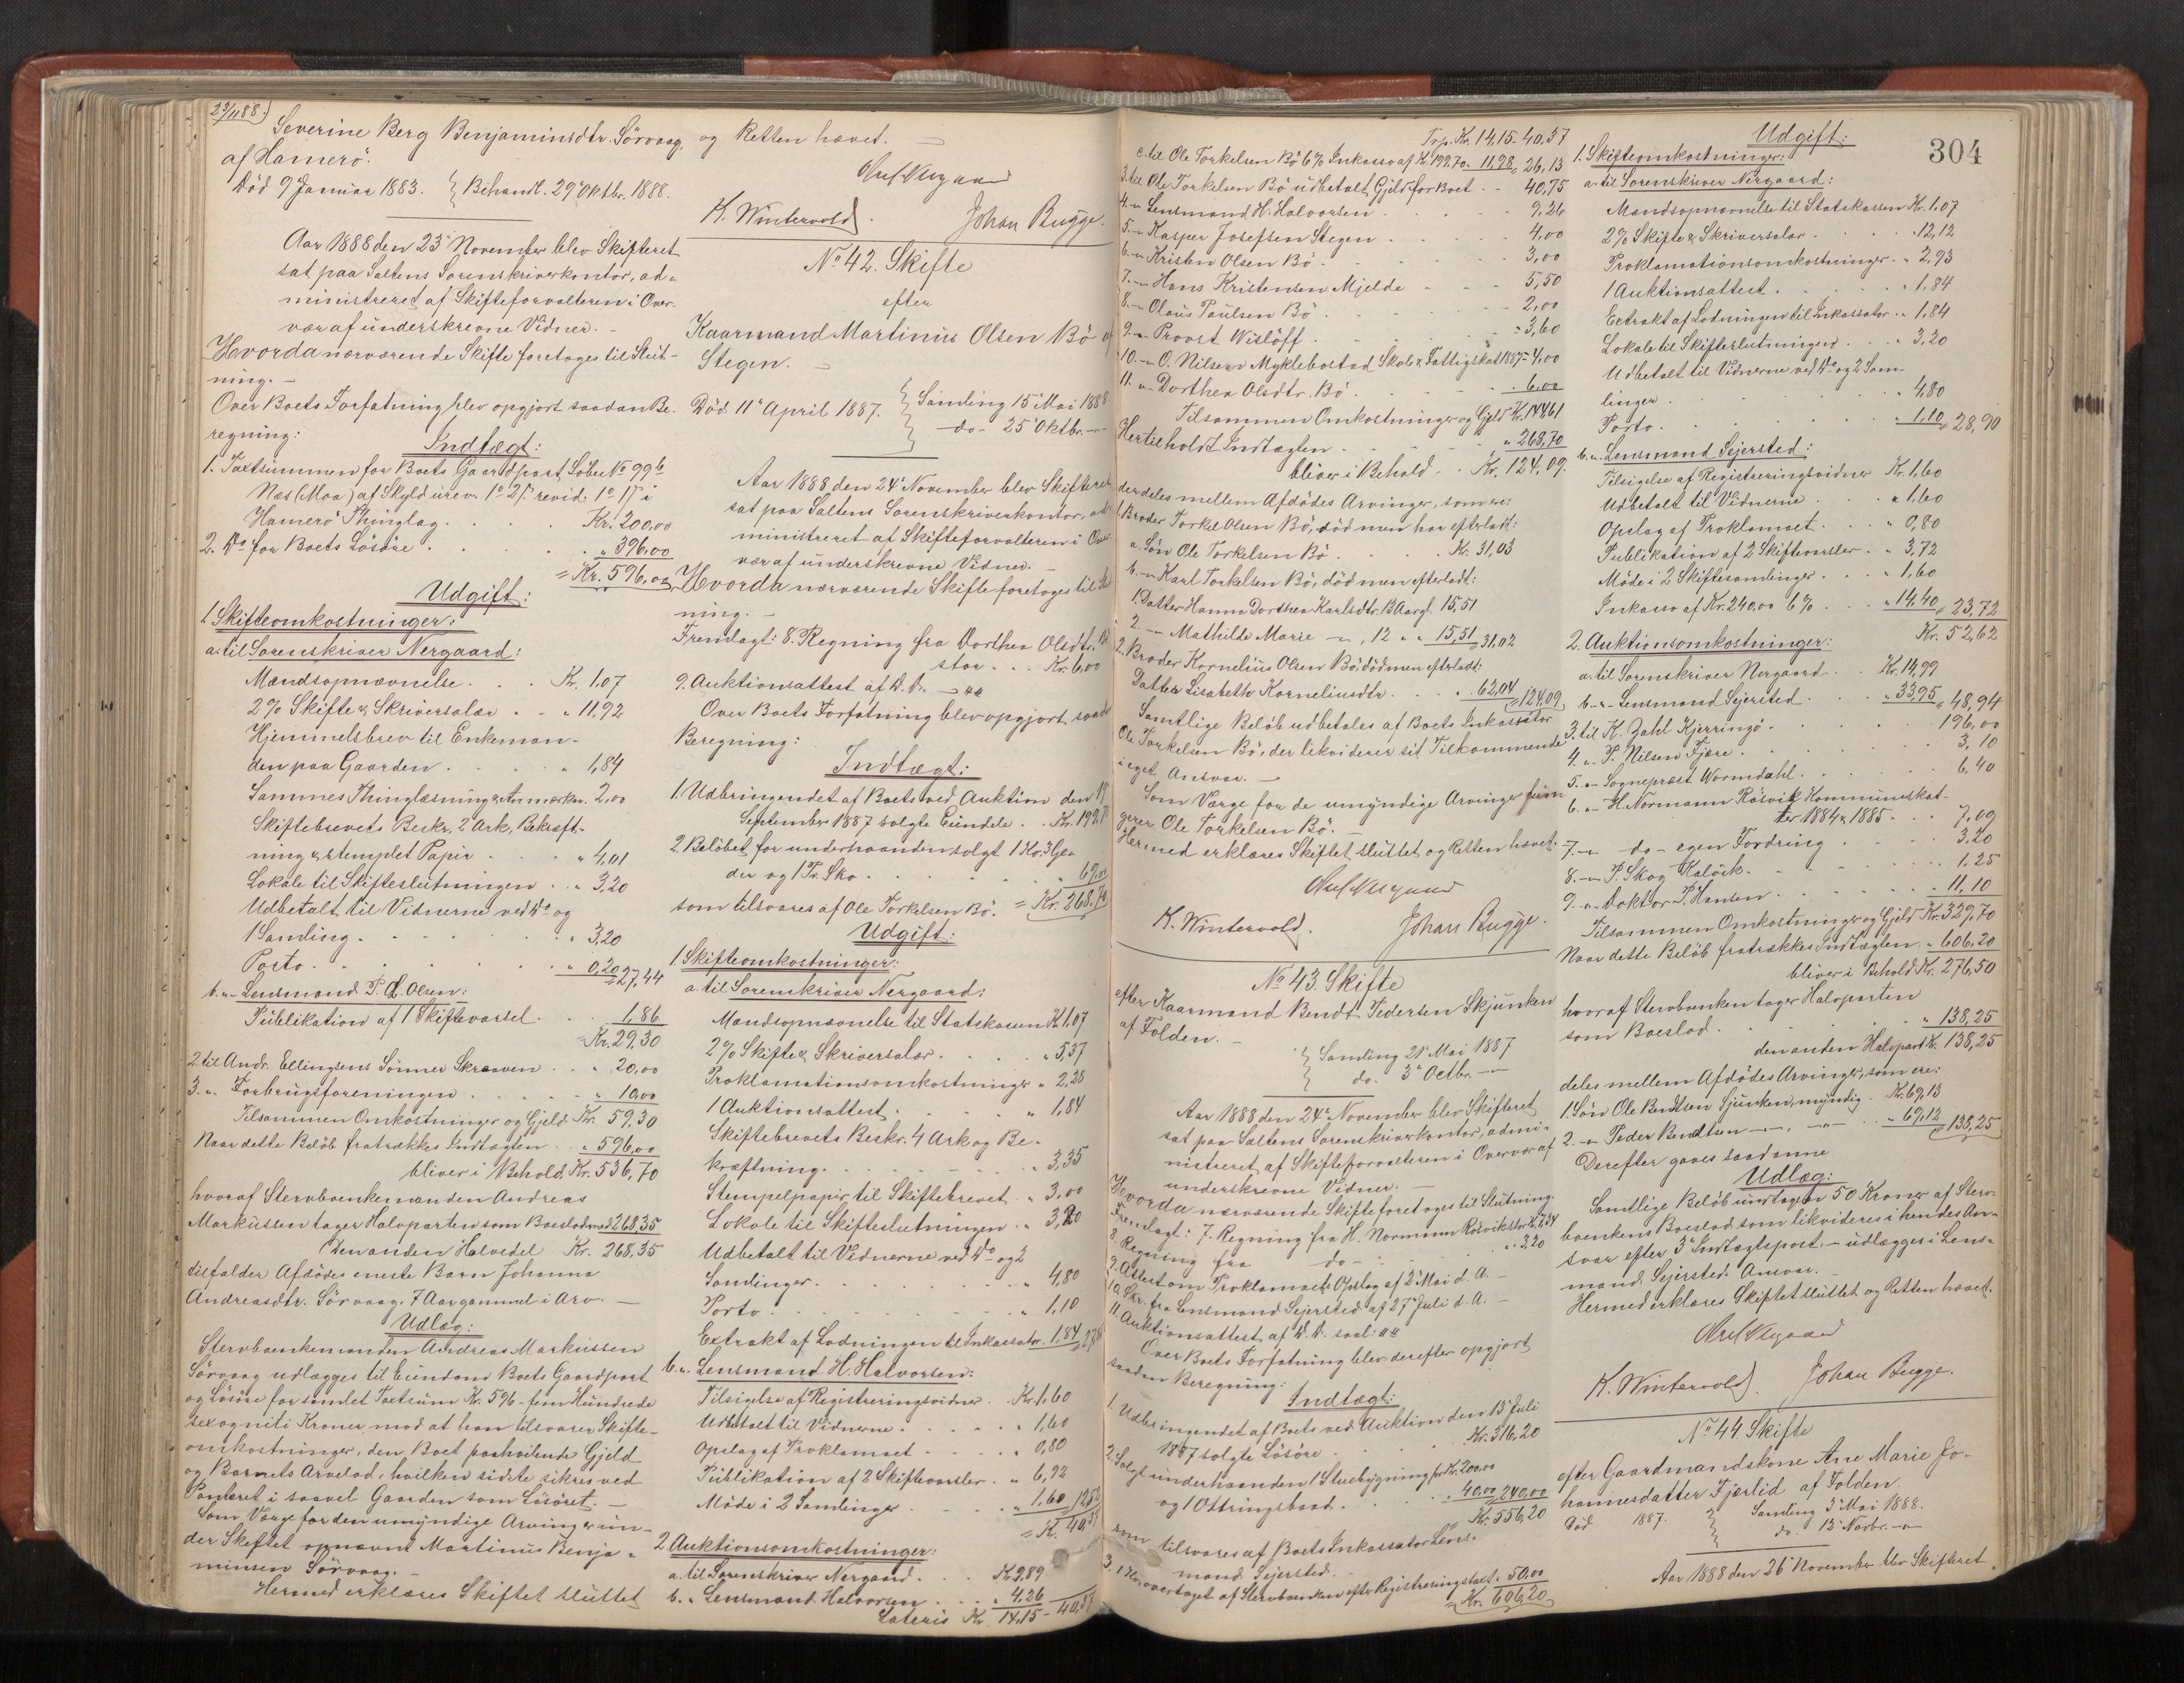 23/11 88.)
Severine Berg Benjaminsdtr. Sörvaag,
af Hamerö.
Död 9 Januar 1883. } Behandl. 29' Oktbr. 1888.
Aar 1888 den 23' November blev Skifteret
sat paa Saltens Sorenskriverkontor, ad-
ministreret af Skifteforvalteren i Over-
vær af underskrevne Vidner. -
Hvorda nærværende Skifte foretoges til Slut-
ning. -
Over Boets Forfatning blev opgjort saadan Be-
regning:
Indtægt:
1. Taxtsummen for Boets Gaardpart Löbe No 99b
Næs (Moa) af Skyld urev. 1o 2ƒ revid. 1o 1ƒ i
Hamerö Thinglag. . . . Kr. 200,00
2. Do for Boets Lösöre. . . . " 396,00
= Kr. 596,00
Udgift:
1. Skifteomkostninger:
a. til Sorenskriver Nergaard:
Mandsopnævnelse. . . Kr. 1,07
2% Skifte & Skriversalær . . " 11,92
Hjemmelsbrev til Enkeman-
den paa Gaarden . . . " 1,84
Sammes Thinglæsning & Anmærkn. 2,00
Skiftebrevets Beskr. 2 Ark, Bekræft-
ning & stemplet Papir . . . " 4,01
Lokale til Skifteslutningen . . " 3,20
Udbetalt til Vidnerne ved Do og
1 Samling. . . . " 3,20
Porto. . . . " 0,20 = 27,44
b. "- Lensmand P. L. Olsen:
Publikation af 1 Skiftevarsel. . . 1,86
= Kr. 29,30
2. til Andr. Ellingsens Sönner Skraaven . . " 20,00
3. "- Forbrugsforeningen . . . " 10,00
Tilsammen Omkostninger og Gjeld Kr. 59,30
Naar dette Belöb fratrækkes Indtægten . . " 596,00
bliver i Behold Kr. 536,70
hvoraf Stervboenkemanden Andreas
Markussen tager Halvparten som Boeslod med 268,35
Den anden Halvedel Kr. 268,35
tilfalder Afdödes eneste Barn Johanna
Andreasdtr. Sörvaag, 7 Aar gammel i Arv. -
Udlæg:
Stervboenkemanden Andreas Markussen
Sörvaag udlægges til Eiendom Boets Gaardpart
og Lösöre for samlet Taxtsum Kr. 596 - fem Hundrede
sex og niti Kroner mod at han tilsvarer Skifte-
omkostninger, den Boet paahvilende Gjeld
og Barnets Arvelod, hvilken sidste sikres ved
Panteret i saavel Gaarden som Lösöret. -
Som Værge for den umyndige Arving er un-
der Skiftet opnævnt Martinus Benja-
minsen Sörvaag. -
Hermed erklæres Skiftet sluttet
og Retten hævet. -
K. Wintervold. Johan Bugge.
No 42. Skifte
efter
Kaarmand Martinus Olsen Bö af
Stegen. -
Död 11' April 1887. } Samling 15' Mai 1888
do- 25' Oktbr. -"-
Aar 1888 den 24' November blev Skifteret
sat paa Saltens Sorenskriverkontor, ad-
ministreret af Skifteforvalteren i Over-
vær af underskrevne Vidner. -
Hvorda nærværende Skifte foretoges til Slut-
ning. -
Fremlagt: 8. Regning fra Dorthea Olsdtr. Bö
stor . . . Kr. 6,00
9. Auktionsattest af D. D. -
Over Boets Forfatning blev opgjort saadan
Beregning:
Indtægt:
1. Udbringendet af Boets ved Auktion den 19
September 1887 solgte Eiendele . . Kr. 199,70
2. Belöbet for underhaanden solgt 1 Ko, 3 Gje-
der og 1 Pr. Sko . . . . 69,00
som tilsvares af Ole Torkelsen Bö. = Kr. 268,70
Udgift:
1. Skifteomkostninger:
a. til Sorenskriver Nergaard:
Mandsopnævnelse til Statskassen Kr. 1,07
2% Skifte & Skriversalær. . . . " 5,37
Proklamationsomkostninger " 2,28
1 Auktionsattest. . . . " 1,84
Skiftebrevets Beskr. 4 Ark og Be-
kræftning. . . . " 3,35
Stempelpapir til Skiftebrevet . " 3,00
Lokale til Skifteslutningen . " 3,20
Udbetalt til Vidnerne ved Do og 2
Samlinger. . . . " 4,80
Porto . . . . " 1,10
Extrakt af Lodningen til Inkassator. 1,84
b. "- Lensmand H. Halvorsen:
Tilsigelse af Registreringsvidner . Kr. 1,60
Udbetalt til Vidnerne . . . " 1,60
Opslag af Proklamaet . . . " 0,80
Publikation af 2 Skiftevarsler . " 6,92
Möde i 2 Samlinger . . . " 1,60 12,52
= Kr. 40,37
2. Auktionsomkostninger:
a. til Sorenskriver Nergaard . . . Kr. 9,89
b. "- Lensmand Halvorsen . . " 4,26
Lateris Kr. 14,15 - 40,37
304
Trsp. Kr. 14,15 - 40,37
c. til Ole Torkelsen Bö 6% Inkasso af Kr. 199,70 . 11,98 = 26,13
3. til Ole Torkelsen Bö udbetalt Gjeld for Boet . . 40,75
4. "- Lensmand H. Halvorsen . . . 9,26
5. "- Kasper Josefsen Stegen . . . 4,00
6. "- Kristen Olsen Bö . . . 3,00
7. "- Hans Kristensen Mjelde . . . 5,50
8. "- Olaus Paulsen Bö . . . 2,00
9. "- Provst Wislöff . . . 3,60
10. "- O. Nilsen Myklebostad Skole & Fattigskat 1887 = 4,00
11. "- Dorthea Olsdtr. Bö . . . 6,00
Tilsammen Omkostninger og Gjeld Kr. 144,61
Hertil holdt Indtægten . . . " 268,70
bliver i Behold . . Kr. 124,09.
der deles mellem Afdödes Arvinger, som ere:
1. Broder Torkel Olsen Bö, död men har efterladt:
a. Sön Ole Torkelsen Bö . . . Kr. 31,03
b. "- Karl Torkelsen Bö, död men efterladt:
1. Datter Hanna Dorthea Karlsdtr. 13 Aar gl. 15,51
2. -"- Mathilde Marie -"-, 12 " " 15,51 = 31,02
2. Broder Kornelius Olsen Bö, död men efterladt:
Datter Lisabeth Korneliusdtr . . . " 62,04 = 124,09
Samtlige Belöb udbetales af Boets Inkassator
Ole Torkelsen Bö, der likviderer sit Tilkommende
i eget Ansvar. -
Som Værge for de umyndige Arvinger fun-
gerer Ole Torkelsen Bö. -
Hermed erklæres Skiftet sluttet og Retten hævet. -
K. Wintervold. Johan Bugge.
No 43. Skifte
efter Kaarmand Bendt Pedersen Skjunken
af Folden. -
} Samling 21' Mai 1887
do. 3' Octbr. -"-
Aar 1888 den 24' November blev Skifteret
sat paa Saltens Sorenskriverkontor, admi-
nistreret af Skifteforvalteren i Overvær af
underskrevne Vidner. -
Hvorda nærværende Skifte foretoges til Slutning.
Fremlagt: 7. Regning fra H. Normann Rösvik stor Kr. 7,34
8. Regning fra do- . " 3,20
9. Attest om Proklamaets Opslag af 2' Mai d. A. -
10. Skr. fra Lensmand Sejersted af 27' Juli d. A. -
11. Auktionsattest af D. D. saal:
Over Boets Forfatning blev derefter opgjort
saadan Beregning:
Indtægt:
1. Udbringendet af Boets ved Auktion den 13' Juli
1887 solgte Lösöre . . . Kr. 316,20
2. Solgt underhaanden 1 Stuebygning for Kr. 200,00
og 1 Ottringsbaad . . . " 40,00 = 240,00
Kr. 556,20
som tilsvares af Boets Inkassator Lens-
mand Sejersted.
3. 1 Ko, overtaget af Stervboenken efter Registreringstaxt . 50,00
= Kr. 606,20
Udgift:
1. Skifteomkostninger:
a. til Sorenskriver Nergaard:
Mandsopnævnelse til Statskassen Kr. 1,07
2% Skifte & Skriversalær . . . . 12,12
Proklamationsomkostninger . " 2,93
1 Auktionsattest . . . " 1,84
Extrakt af Lodningen til Inkassator . " 1,84
Lokale til Skifteslutningen . . . " 3,20
Udbetalt til Vidnerne ved Do og 2 Sam-
linger . . . " 4,80
Porto . . . " 1,10 = 28,90
b. "- Lensmand Sejersted:
Tilsigelse af Registreringsvidner Kr. 1,60
Udbetalt til Vidnerne . . . " 1,60
Opslag af Proklamaet . . . " 0,80
Publikation af 2 Skiftevarsler . " 3,72
Möde i 2 Skiftesamlinger . . . " 1,60
Inkasso af Kr. 240,00 6% . . . " 14,40 = 23,72
Kr. 52,62
2. Auktionsomkostninger:
a. til Sorenskriver Nergaard . . Kr. 14,99
b. -"- Lensmand Sejersted . . . " 33,95 = 48,94
3. til K. Zahl Kjerringö . . . 196,00
4. "- P. Nilsen Fjære . . . 3,10
5. "- Sogneprest Wormdahl . . . 6,40
6. "- H. Normann Rösvik Kommuneskat-
ter 1884 & 1885 . . . 7,09
7. "- do- egen Fordring . . . 3,20
8. "- P. Skog Kalvik . . . 1,25
9. "- Doktor P. Hansen . . . 11,10
Tilsammen Omkostninger og Gjeld Kr. 329,70
Naar dette Belöb fratrækkes Indtægten . " 606,20
bliver i Behold Kr. 276,50
hvoraf Stervboenken tager Halvparten
som Boeslod . . . " 138,25
den anden Halvpart Kr. 138,25
deles mellem Afdödes Arvinger, som ere:
1. Sön Ole Bendtsen Sjunken, myndig . Kr. 69,13
2. -"- Peder Bendtsen -"-, -"- . . " 69,12 = 138,25
Derefter gaves saadanne
Udlæg:
Samtlige Belöb undtagen 50 Kroner af Sterv-
boenkens Boeslod som likvideres i hendes An-
svar efter 3' Indtægtspost, - udlægges i Lens-
mand Sejersteds Ansvar.
Hermed erklæres Skiftet sluttet og Retten hævet.
K. Wintervold. Johan Bugge.
No 44 Skifte
efter Gaardmandskone Ane Marie Jo-
hannesdatter Fjærlid af Folden.
Död 1887. } Samling 3' Mai 1888.
do. 13' Novbr. -"-
Aar 1888 den 26' November blev Skifteret